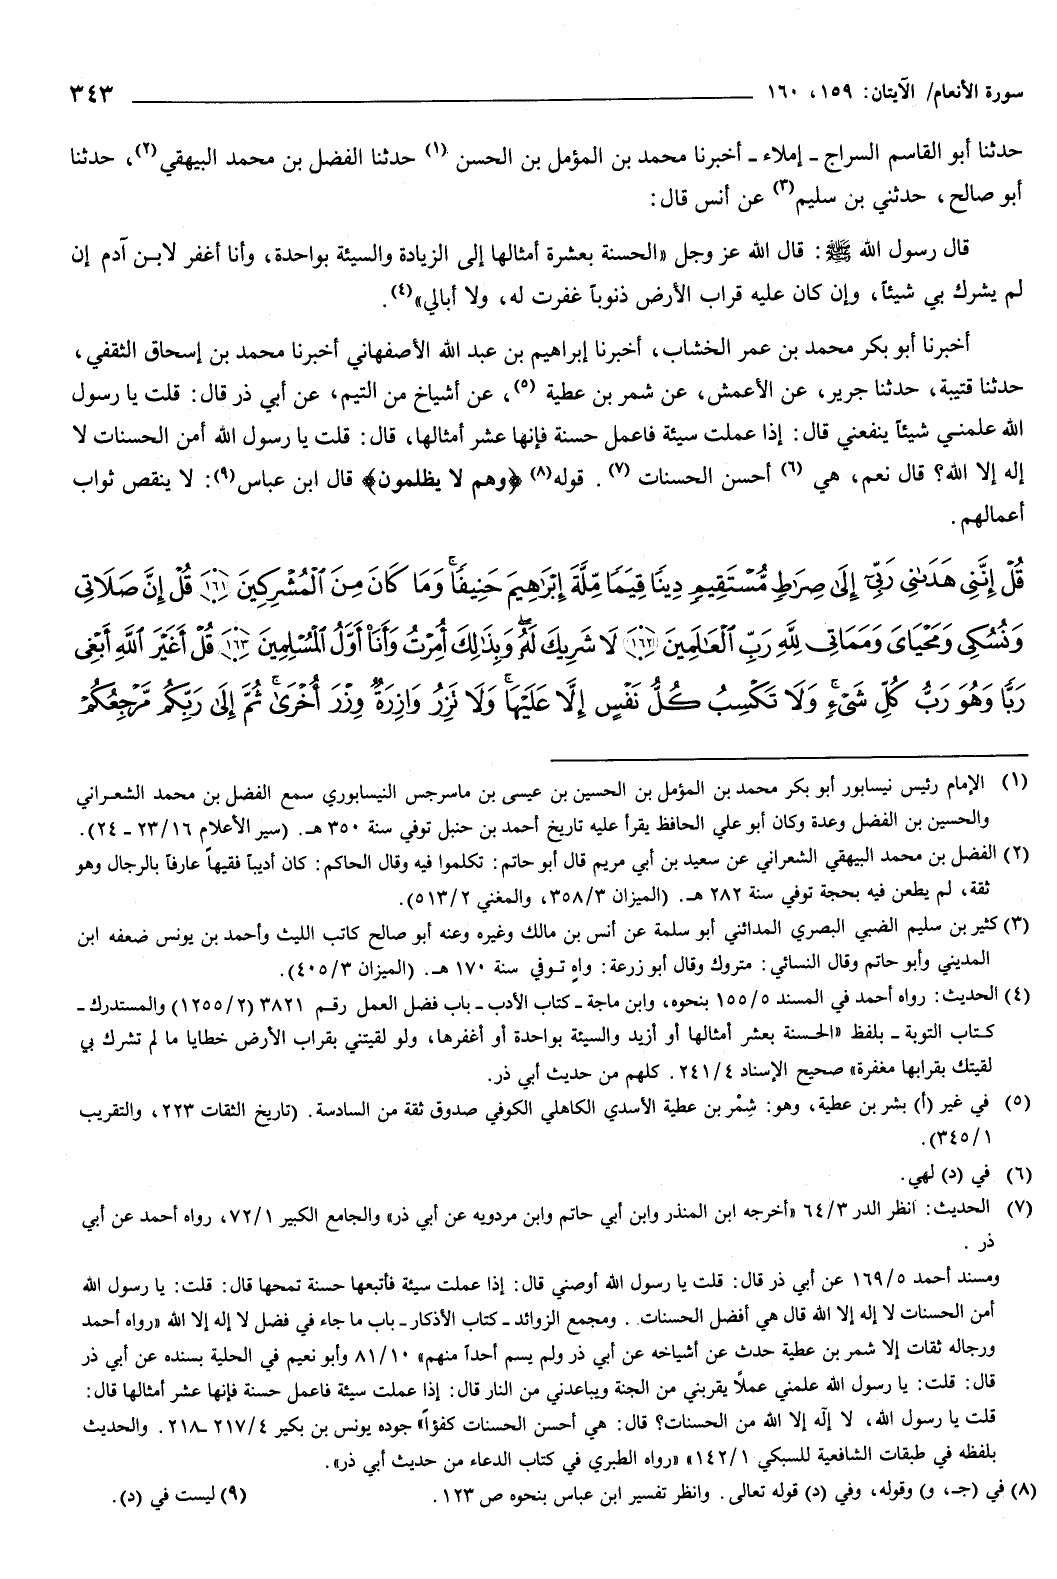 سورة الأنعام/ الآيتان: ١٥٩، ١٦٠ ٣٤٣
حدثنا أبو القاسم السراج ـ إملاء ـ أخبرنا محمد بن المؤمل بن الحسن (١) حدثنا الفضل بن محمد البيهقي(٢)، حدثنا
أبو صالح، حدثني بن سليم(٣) عن أنس قال:
قال رسول الله ﷺ: قال الله عز وجل «الحسنة بعشرة أمثالها إلى الزيادة والسيئة بواحدة، وأنا أغفر لابـن آدم إن
لم يشرك بي شيئاً، وإن كان عليه قراب الأرض ذنوباً غفرت له، ولا أبالي»(٤).
أخبرنا أبو بكر محمد بن عمر الخشاب، أخبرنا إبراهيم بن عبد الله الأصفهاني أخبرنا محمد بن إسحاق الثقفي،
حدثنا قتيبة، حدثنا جرير، عن الأعمش، عن شمر بن عطية (٥)، عن أشياخ من التيم، عن أبي ذر قال: قلت يا رسول
الله علمنـي شيئاً ينفعني قال: إذا عملت سيئة فاعمل حسنة فإنها عشر أمثالها، قال: قلت يا رسول الله أمن الحسنات لا
إله إلا الله؟ قال نعم، هي (٦) أحسن الحسنات (٧). قوله(٨) ﴿وهم لا يظلمون﴾ قال ابن عباس(٩): لا ينقص ثواب
أعمالهم.
قُلْ إِنَّنِي هَدَىٰنِي رَبِّيٓ إِلَىٰ صِرَٰطٍ مُّسْتَقِيمٍ دِينًا قِيَمًا مِّلَّةَ إِبْرَٰهِيمَ حَنِيفًا ۚ وَمَا كَانَ مِنَ ٱلْمُشْرِكِينَ ﴿١٦١﴾ قُلْ إِنَّ صَلَاتِي
وَنُسُكِي وَمَحْيَايَ وَمَمَاتِي لِلَّهِ رَبِّ ٱلْعَٰلَمِينَ ﴿١٦٢﴾ لَا شَرِيكَ لَهُۥ ۖ وَبِذَٰلِكَ أُمِرْتُ وَأَنَا۠ أَوَّلُ ٱلْمُسْلِمِينَ ﴿١٦٣﴾ قُلْ أَغَيْرَ ٱللَّهِ أَبْغِي
رَبًّا وَهُوَ رَبُّ كُلِّ شَيْءٍ ۚ وَلَا تَكْسِبُ كُلُّ نَفْسٍ إِلَّا عَلَيْهَا ۚ وَلَا تَزِرُ وَازِرَةٌ وِزْرَ أُخْرَىٰ ۚ ثُمَّ إِلَىٰ رَبِّكُم مَّرْجِعُكُمْ
(١) الإمام رئيس نيسابور أبو بكر محمد بن المؤمل بن الحسين بن عيسى بن ماسرجس النيسابوري سمع الفضل بن محمد الشعـراني
والحسين بن الفضل وعدة وكان أبو علي الحافظ يقرأ عليه تاريخ أحمد بن حنبل توفي سنة ٣٥٠ هـ. (سير الأعلام ٢٣/١٦ ـ ٢٤).
(٢) الفضل بن محمد البيهقي الشعراني عن سعيد بن أبي مريم قال أبو حاتم: تكلموا فيه وقال الحاكم: كان أديباً فقيهاً عارفاً بالرجال وهو
ثقة، لم يطعن فيه بحجة توفي سنة ٢٨٢ هـ. (الميزان ٣٥٨/٣، والمغني ٥١٣/٢).
(٣) كثير بن سليم الضبي البصري المدائني أبو سلمة عن أنس بن مالك وغيره وعنه أبو صالح كاتب الليث وأحمد بن يونس ضعفه ابن
المديني وأبو حاتم وقال النسائي: متروك وقال أبو زرعة: واهٍ تـوفي سنة ١٧٠ هـ. (الميزان ٤٠٥/٣).
(٤) الحديث: رواه أحمد في المسند ١٥٥/٥ بنحوه، وابن ماجة ـ كتاب الأدب ـ باب فضل العمل رقـم ٣٨٢١ (١٢٥٥/٢) والمستدرك ـ
كتـاب التوبة ـ بلفظ «الحسنة بعشر أمثالها أو أزيد والسيئة بواحدة أو أغفرها، ولو لقيتني بقراب الأرض خطايا ما لم تشرك بي
لقيتك بقرابها مغفرة» صحيح الإسناد ٢٤١/٤. كلهم من حديث أبي ذر.
(٥) في غير (أ) بشر بن عطية، وهو: شِمْر بن عطية الأسدي الكاهلي الكوفي صدوق ثقة من السادسة. (تاريخ الثقات ٢٢٣، والتقريب
٣٤٥/١).
(٦) في (د) لهي.
(٧) الحديث: انظر الدر ٦٤/٣ «أخرجه ابن المنذر وابن أبي حاتم وابن مردويه عن أبي ذر» والجامع الكبير ٧٢/١، رواه أحمد عن أبي
ذر .
ومسند أحمد ١٦٩/٥ عن أبي ذر قال: قلت يا رسول الله أوصني قال: إذا عملت سيئة فأتبعها حسنة تمحها قال: قلت: يا رسول الله
أمن الحسنات لا إله إلا الله قال هي أفضل الحسنات. . ومجمع الزوائد ـ كتاب الأذكار ـ باب ما جاء في فضل لا إله إلا الله «رواه أحمد
ورجاله ثقات إلا شمر بن عطية حدث عن أشياخه عن أبي ذر ولم يسم أحداً منهم» ٨١/١٠ وأبو نعيم في الحلية بسنده عن أبي ذر
قال: قلت: يا رسول الله علمني عملاً يقربني من الجنة ويباعدني من النار قال: إذا عملت سيئة فاعمل حسنة فإنها عشر أمثالها قال:
قلت يا رسول الله، لا إلٓه إلا الله من الحسنات؟ قال: هي أحسن الحسنات كفؤاً» جوده يونس بن بكير ٢١٧/٤ ـ٢١٨. والحديث
بلفظه في طبقات الشافعية للسبكي ١٤٢/١» «رواه الطبري في كتاب الدعاء من حديث أبي ذر».
(٨) في (جـ، و) وقوله، وفي (د) قوله تعالى. وانظر تفسير ابن عباس بنحوه ص ١٢٣. (٩) ليست في (د).